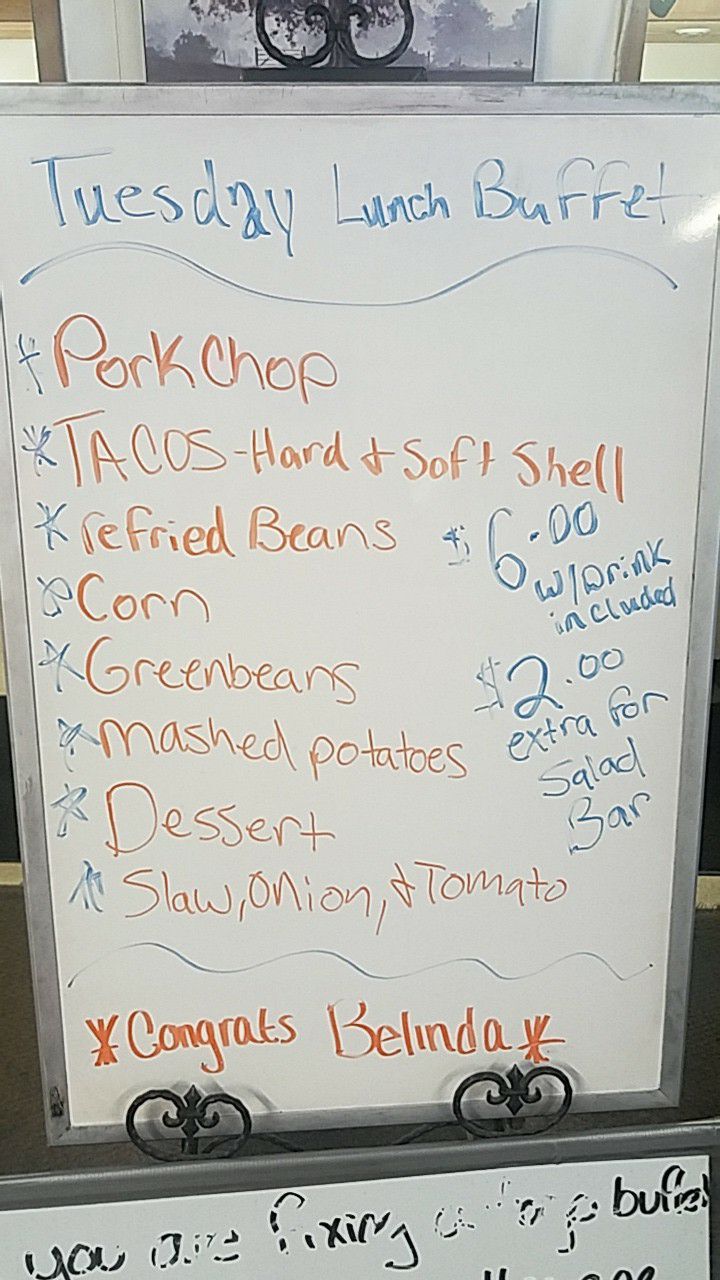 Tuesday Lunch Buffet
* Pork Chop
* TACOS - Hard & Soft Shell
* refried Beans
* Corn
* Greenbeans
* mashed potatoes
* Dessert
* Slaw, Onion, & Tomato
$6.00
w/Drink
included
$2.00
extra for
Salad
Bar
* Congrats Belinda *
you are fixing buffet